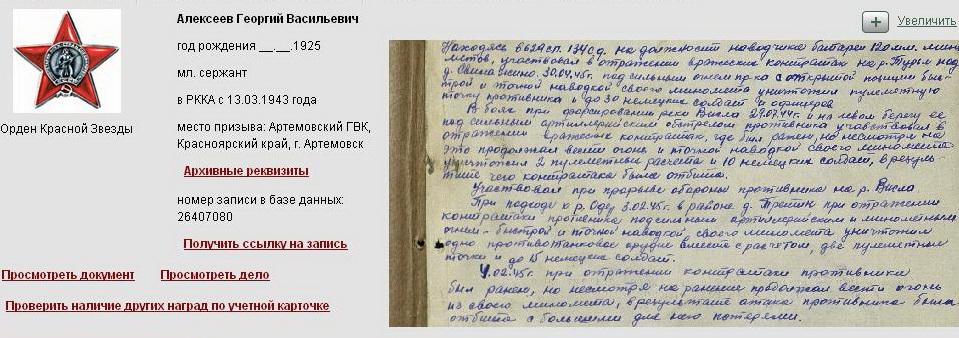 Алексеев Георгий Васильевич
год рождения __.__.1925
мл. сержант
в РККА с 13.03.1943 года
место призыва: Артемовский ГВК,
Красноярский край, г. Артемовск
Архивные реквизиты
номер записи в базе данных:
26407080
Получить ссылку на запись
Орден Красной Звезды
Просмотреть документ
Просмотреть дело
Проверить наличие других наград по учетной карточке
Увеличить
Находясь в 629 сп. 134 с.д. на должности наводчика батареи 120 мл. мино
метов, участвовал в отражении вражеских контратак на р. Турья под
30.04.45г. под сильным огнем пр-ка с открытой позиции быс-
трой и точной наводкой своего миномета уничтожил пулеметную
точку противника и до 30 немецких солдат и офицеров
В боях при форсировании реки Висла 29.07.44г. и на левом берегу ее
под сильным артиллерийским обстрелом противника участвовал в
отражении вражеских контратак, где был ранен, но несмотря на
это продолжал вести огонь и точной наводкой своего миномета
уничтожил 2 пулеметных расчета и 10 немецких солдат, в резуль-
тате чего контратака была отбита.
Участвовал при прорыве обороны противника на р. Висла
При подходе к р. Одер 3.02.45г. в районе д. при отражении
контратаки противника под сильным артиллерийским и минометным
огнем - быстрой и точной наводкой своего миномета уничтожил
одно противотанковое орудие вместе с расчетом, две пулеметных
точки и до 15 немецких солдат.
4.02.45г. при отражении контратаки противника
был ранен, но несмотря на ранение продолжал вести огонь
из своего миномета, в результате атака противника была
отбита с большими для него потерями.